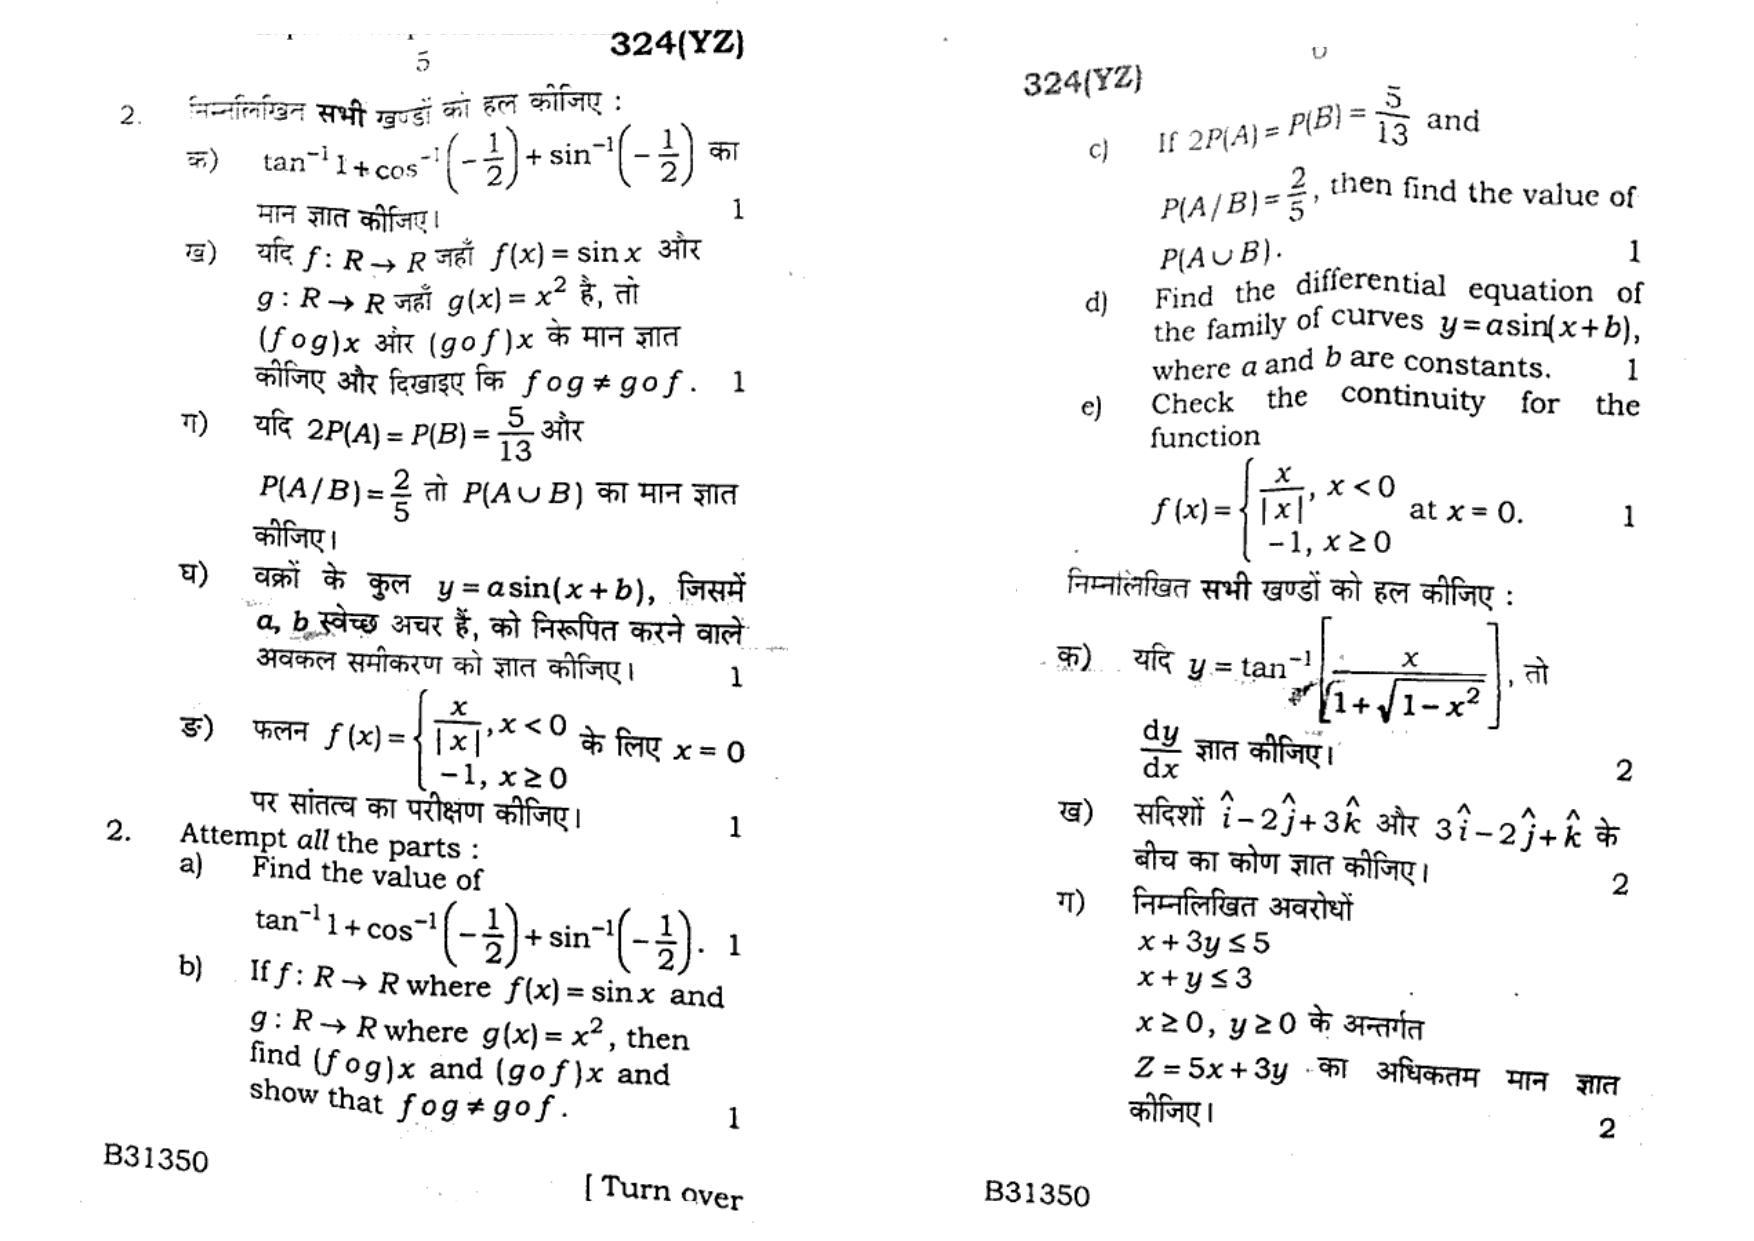 5
324(YZ)
2. निम्नलिखित सभी खण्डों को हल कीजिए :
क) tan⁻¹ 1 + cos⁻¹(−1/2) + sin⁻¹(−1/2) का
मान ज्ञात कीजिए। 1
ख) यदि f : R → R जहाँ f(x) = sin x और
g : R → R जहाँ g(x) = x² है, तो
(f o g)x और (g o f)x के मान ज्ञात
कीजिए और दिखाइए कि f o g ≠ g o f . 1
ग) यदि 2P(A) = P(B) = 5/13 और
P(A/B) = 2/5 तो P(A ∪ B) का मान ज्ञात
कीजिए।
घ) वक्रों के कुल y = a sin(x + b), जिसमें
a, b स्वेच्छ अचर हैं, को निरूपित करने वाले
अवकल समीकरण को ज्ञात कीजिए। 1
ङ) फलन f(x) = { x/|x|, x < 0
−1, x ≥ 0 के लिए x = 0
पर सांतत्व का परीक्षण कीजिए। 1
2. Attempt all the parts :
a) Find the value of
tan⁻¹ 1 + cos⁻¹(−1/2) + sin⁻¹(−1/2). 1
b) If f : R → R where f(x) = sin x and
g : R → R where g(x) = x², then
find (f o g)x and (g o f)x and
show that f o g ≠ g o f . 1
B31350
[ Turn over
324(YZ)
c) If 2P(A) = P(B) = 5/13 and
P(A/B) = 2/5, then find the value of
P(A ∪ B). 1
d) Find the differential equation of
the family of curves y = a sin(x + b),
where a and b are constants. 1
e) Check the continuity for the
function
f(x) = { x/|x|, x < 0
−1, x ≥ 0 at x = 0. 1
निम्नलिखित सभी खण्डों को हल कीजिए :
क) यदि y = tan⁻¹[x/(1 + √(1 − x²))], तो
dy/dx ज्ञात कीजिए। 2
ख) सदिशों î − 2ĵ + 3k̂ और 3î − 2ĵ + k̂ के
बीच का कोण ज्ञात कीजिए। 2
ग) निम्नलिखित अवरोधों
x + 3y ≤ 5
x + y ≤ 3
x ≥ 0, y ≥ 0 के अन्तर्गत
Z = 5x + 3y का अधिकतम मान ज्ञात
कीजिए। 2
B31350